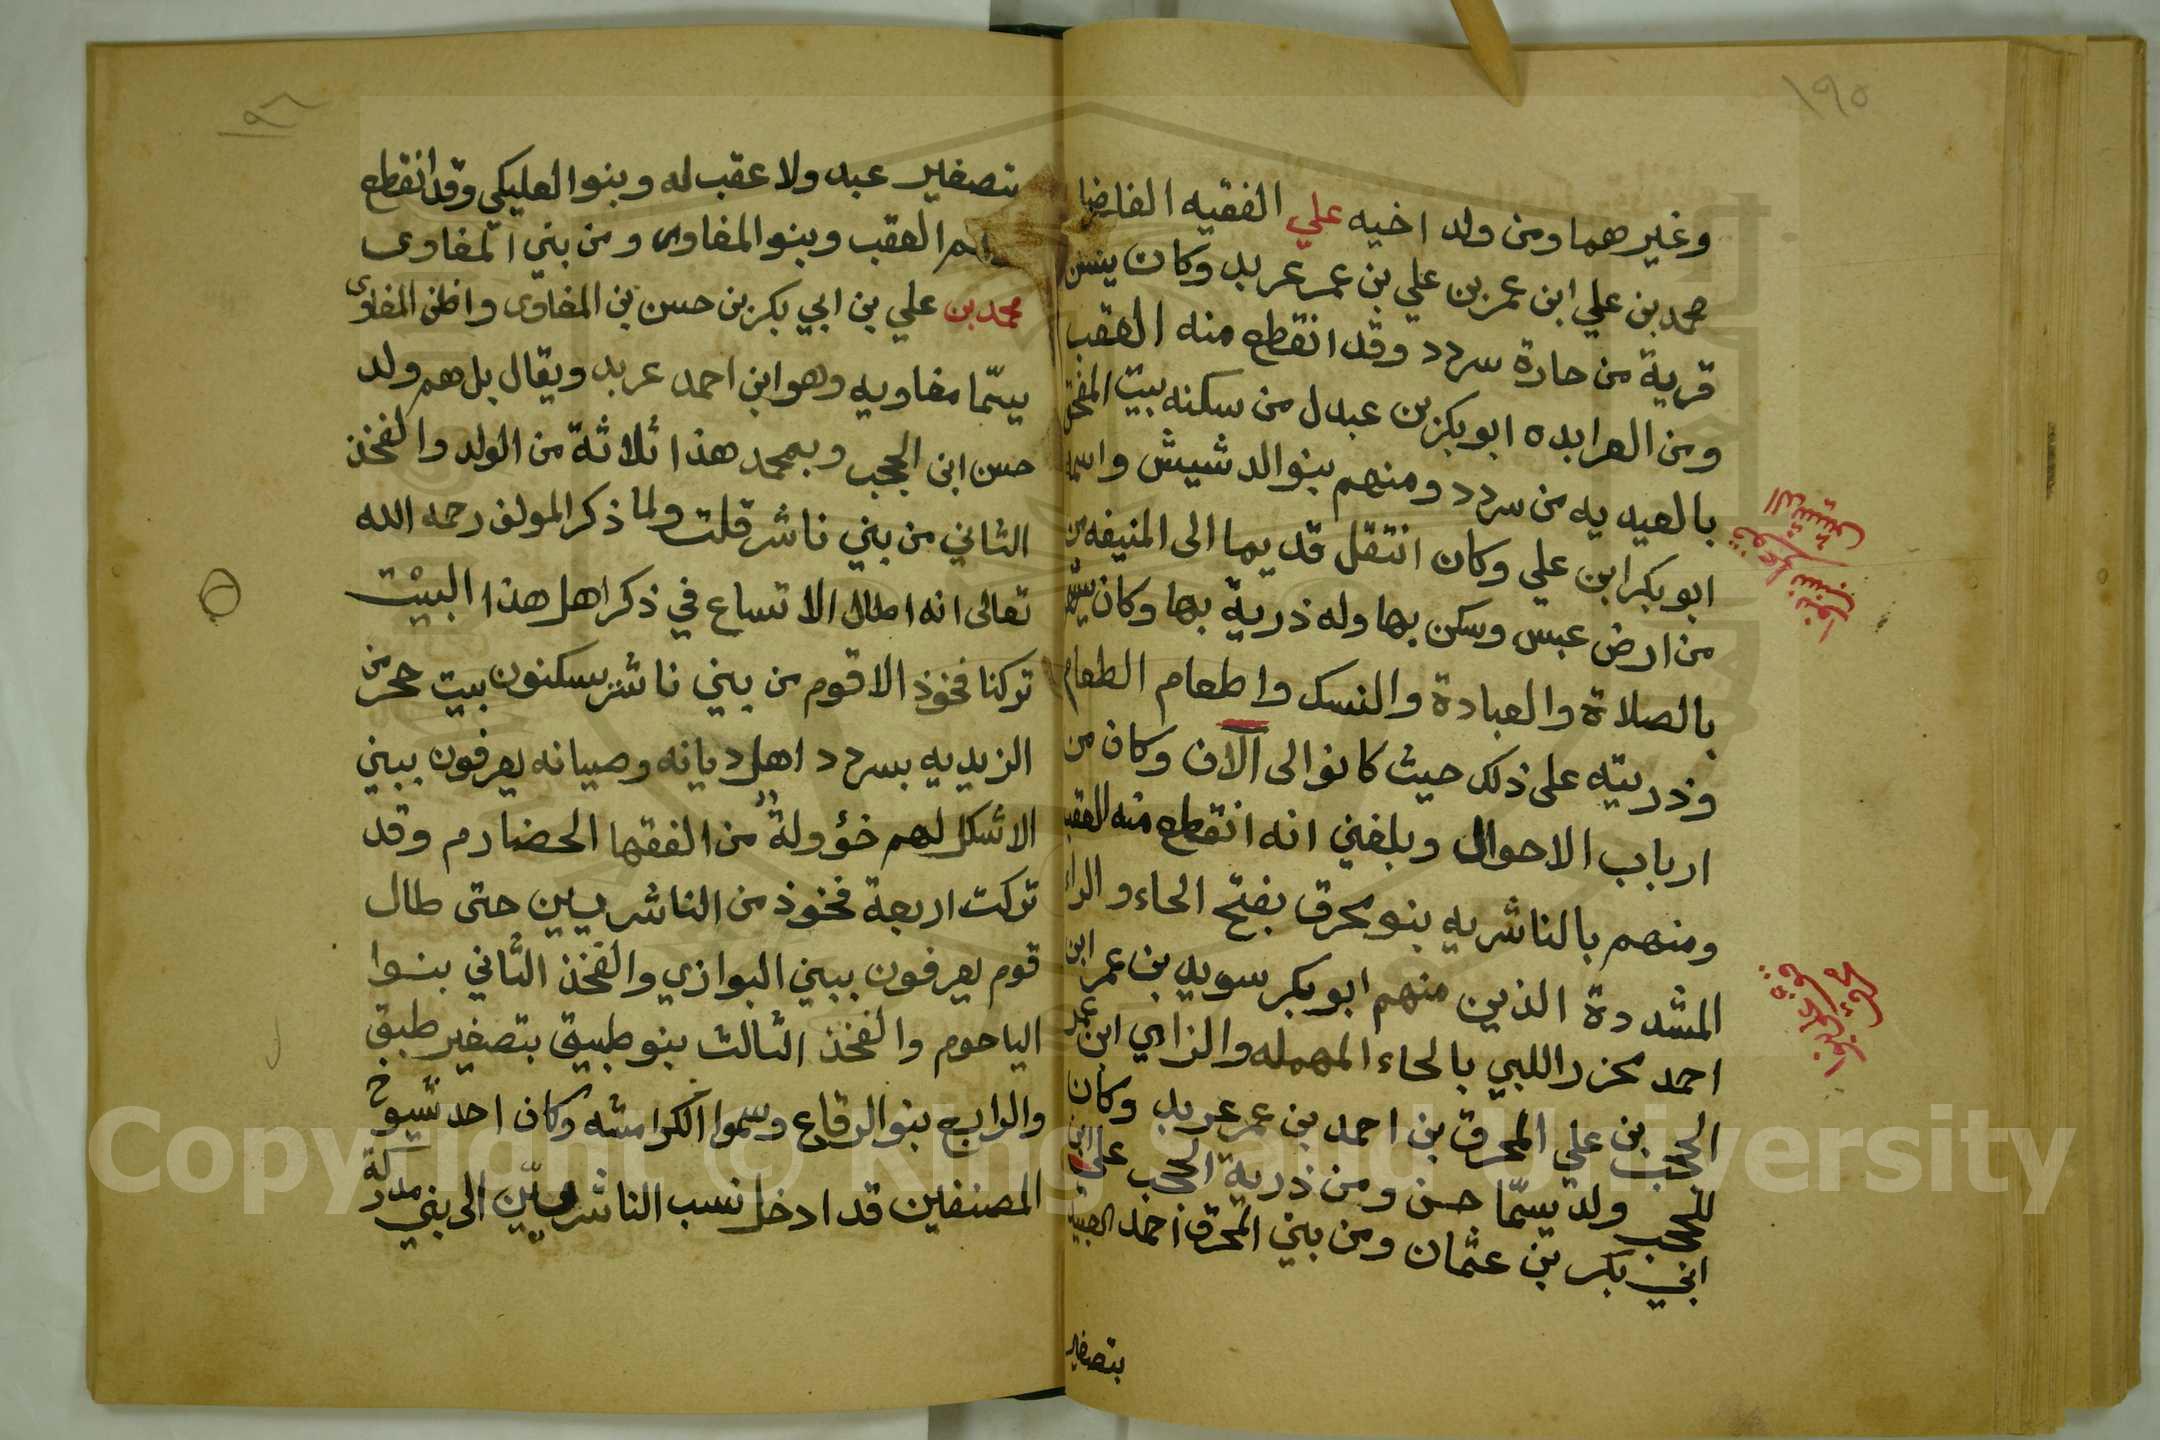 ١٩٥
وغيرهما ومن ولد اخيه علي الفقيه الفاضل
محمد بن علي ابن عمر بن علي بن عمر عربد وكان يسكن
قرية من حازة سردد وقد انقطع منه العقب
ومن العرابده ابو بكر بن عبدل من سكنه بيت
بالعبديه من سردد ومنهم بنوا الدشيش واسمه
ابو بكر ابن علي وكان انتقل قديما الى المنيفه من
من ارض عبس وسكن بها وله ذرية بها وكان
بالصلاة والعبادة والنسك واطعام الطعام
وذريته على ذلك حيث كانوا الى الآن وكان من
ارباب الاحوال وبلغني انه انقطع منه العقب
ومنهم بالناشريه بنو محرق بفتح الحاء والراء
المشددة الذين منهم ابو بكر سويد بن عمر ابن
احمد محزر اللبي بالحاء المهمله والزاي ابن
الحجب بن علي المحرق بن احمد بن عمر عربد وكان
للحجب ولد يسمّا حسن ومن ذرية الحجب علي ابن
ابي بكر بن عثمان ومن بني المحرق احمد العبيد
بتصغير
١٩٦
بتصغير عبد ولا عقب له وبنوا العليكي وقد انقطع
العقب وبنو المغاوى ومن بني المغاوى
محمد بن علي بن ابي بكر بن حسن بن المغاوى واظن المغاوى
يسمّا مغاويه وهو ابن احمد عربد ويقال بل هم ولد
حسن ابن الحجب وبمحمد هذا ثلاثة من الولد والفخذ
الثاني من بني ناشر قلت ولما ذكر المولف رحمه الله
تعالى انه اطال الاتساع في ذكر اهل هذا البيت
تركنا فخوذ الاقوم من بني ناشر يسكنون بيت حجر من
الزيديه بسردد اهل ديانه وصيانه يعرفون ببني
الاشكل لهم خؤولة من الفقها الحضارم وقد
تركت اربعة فخوذ من الناشريين حتى طال
قوم يعرفون ببني البوازي والفخذ الثاني بنوا
الياحوم والفخذ الثالث بنو طبيق بتصغير طبق
والرابع بنوا الرقاع وسموا الكرامشه وكان احد شيوخ
المصنفين قد ادخل نسب الناشريين الى بني مدركة
Copyright © King Saud University